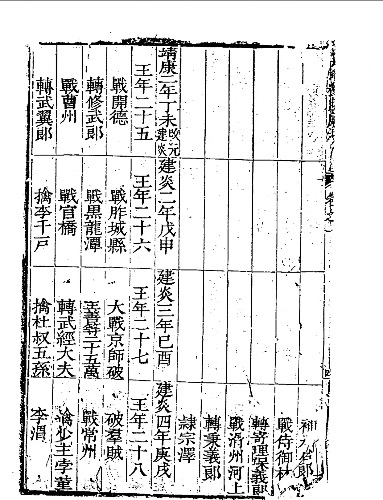 戰侍御林
轉寄理保義郎
戰滑州河上
轉秉義郎
隸宗澤
靖康二年丁未改元建炎 建炎二年戊申 建炎三年己酉 建炎四年庚戌
王年二十五 王年二十六 王年二十七 王年二十八
戰開德 戰胙城縣 大戰京師破 破羣賊
轉修武郎 戰黑龍潭 王善等二十五萬 戰常州
戰曹州 戰官橋 轉武經大夫 擒少主孛堇
轉武翼郎 擒李千戶 擒杜叔五孫 李渭